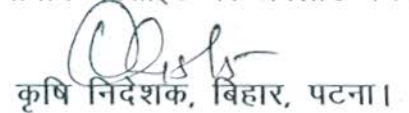 कृषि निदेशक, बिहार, पटना।